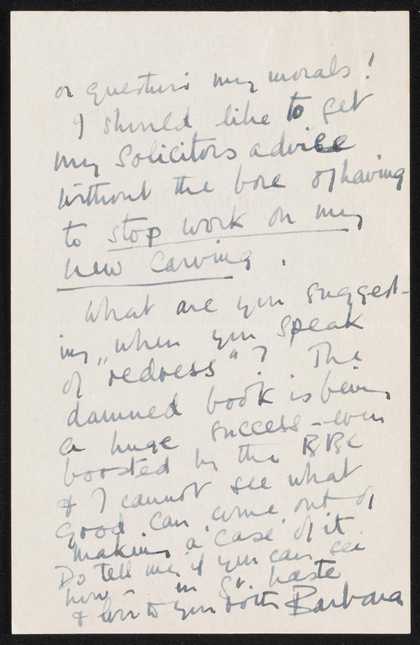 or question my morals!
I should like to get
my Solicitors advice
without the bore of having
to stop work on my
new carving.
What are you suggest-
ing „when you speak
of redress"? The
damned book is being
a huge success – even
boosted by the BBC
& I cannot see what
good can come out of
making a case of it
Do tell me if you can see
how – in gt. haste
& love to you both Barbara